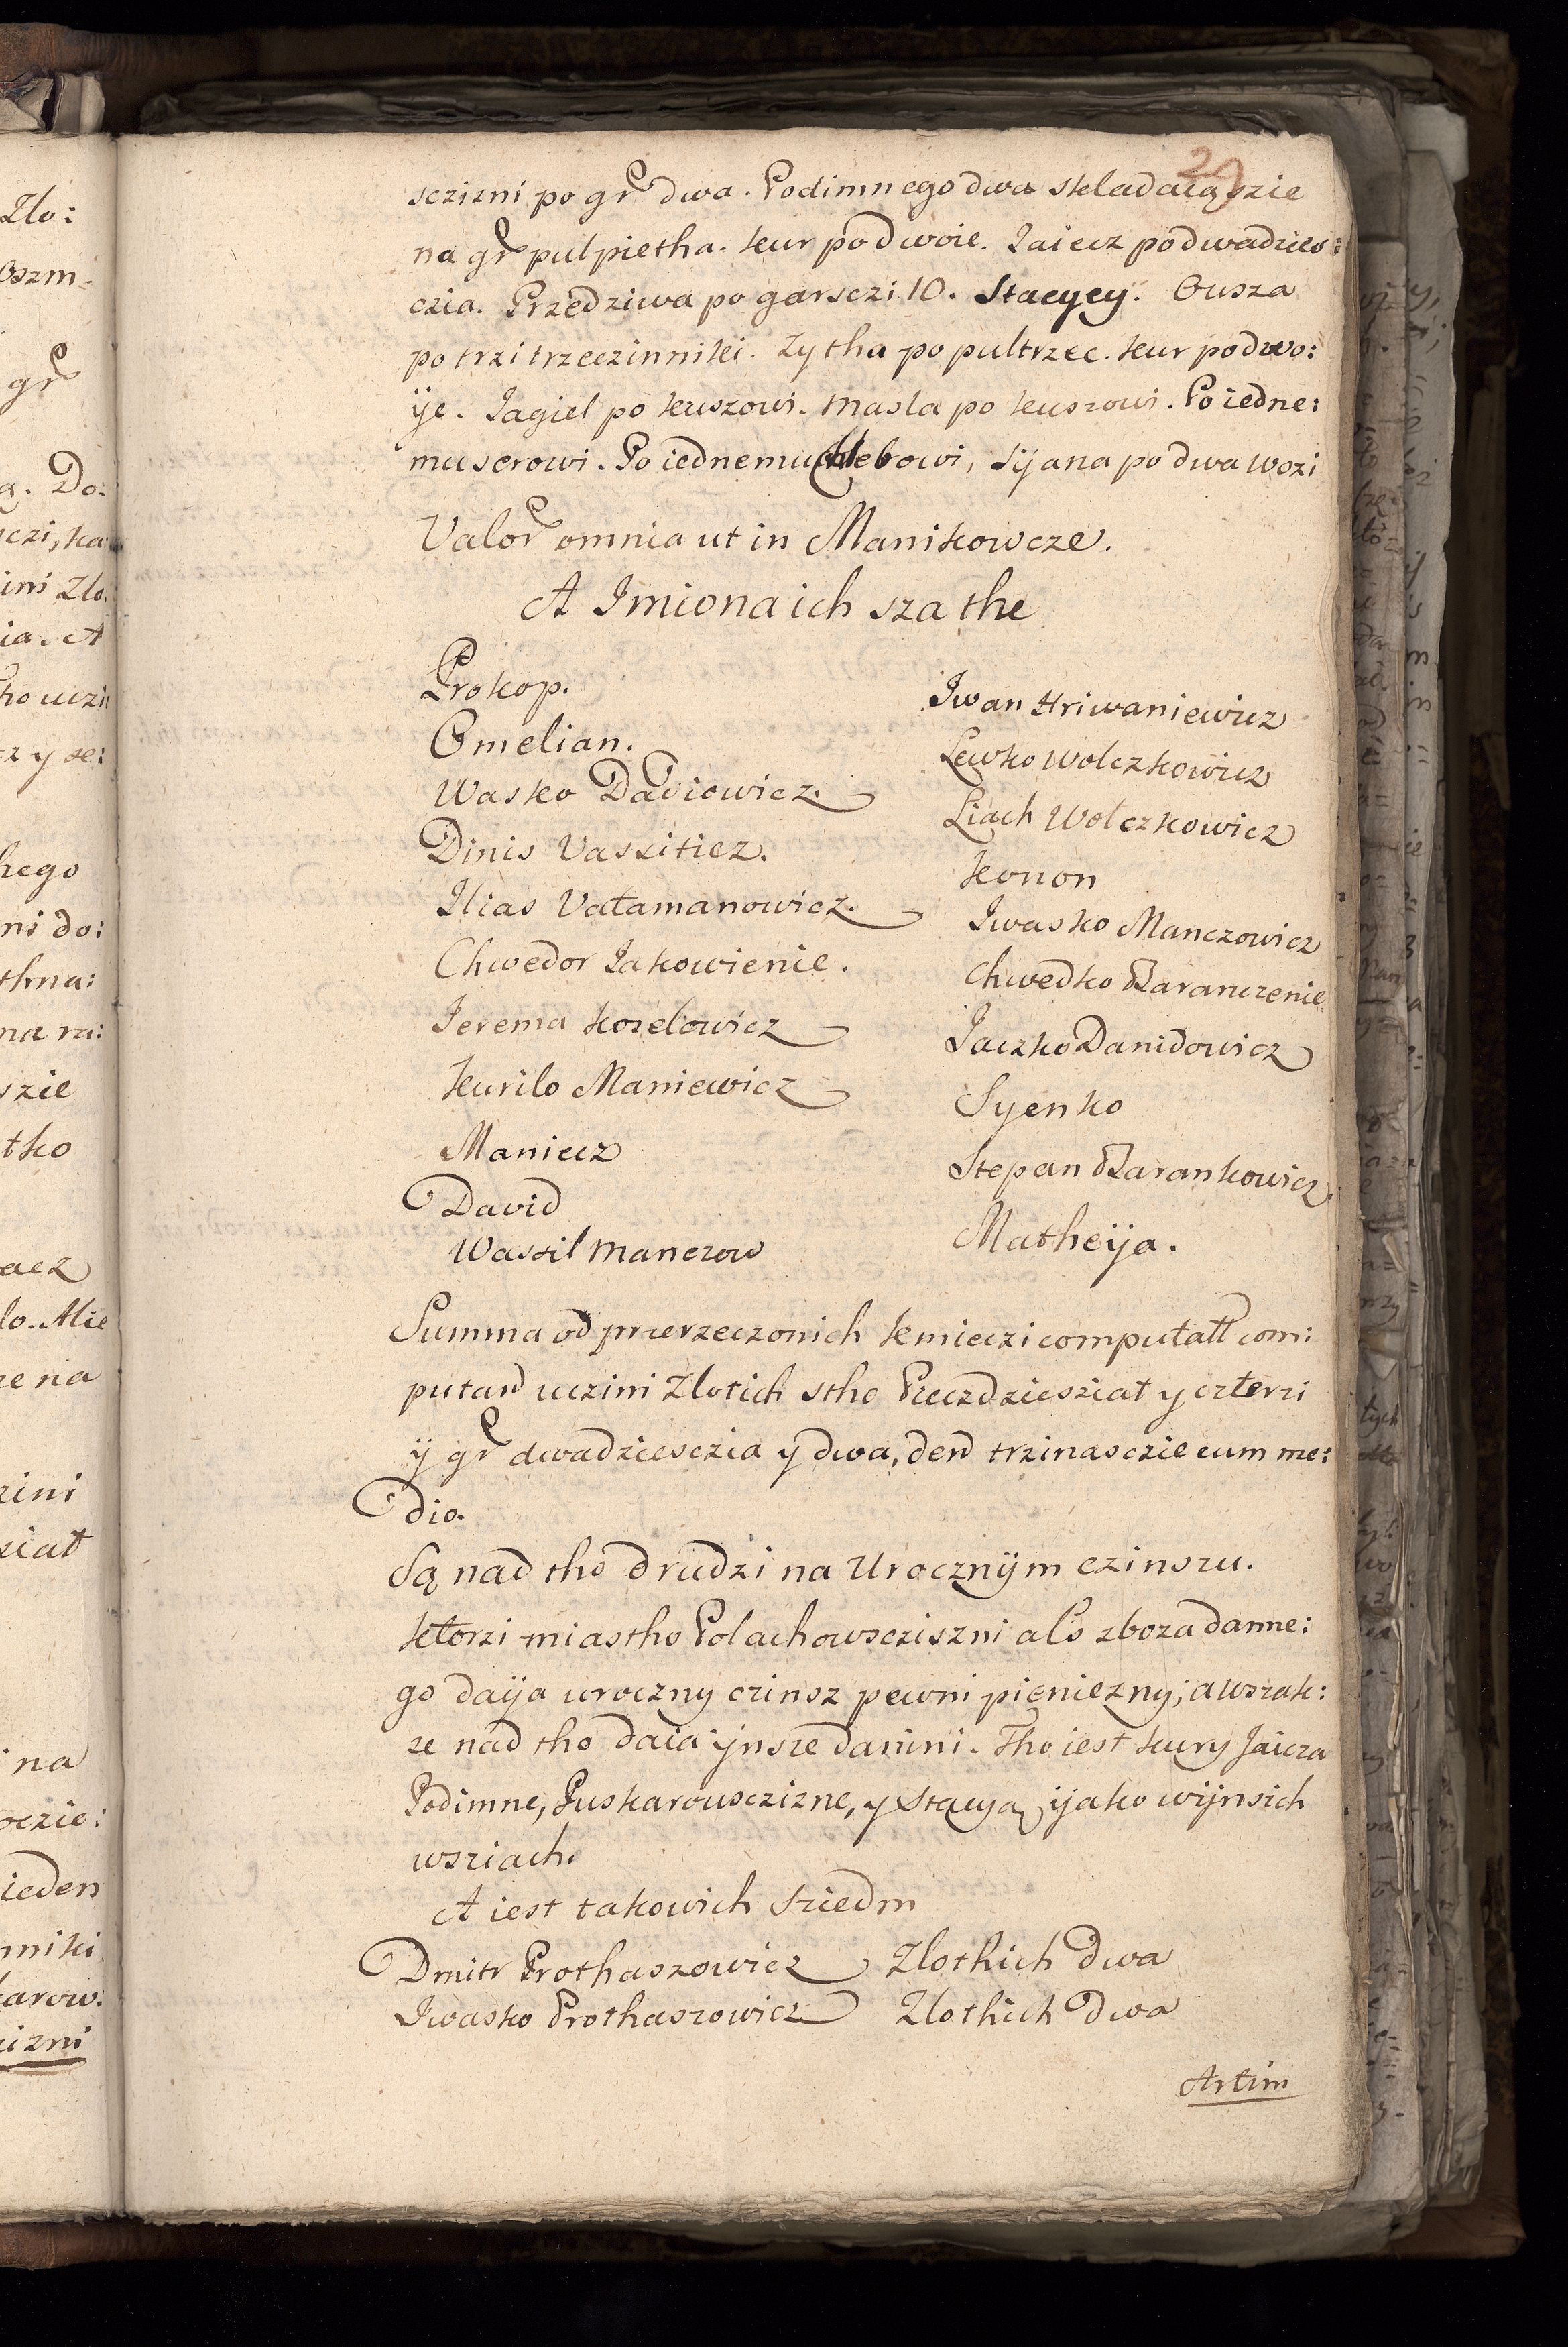 29
sczizni po gr dwa. Podimnego dwa skladaią szie
na gr pulpietha. Kur podwoie. Iaiecz podwadzies:
czia. Przędziwa po garsczi 10. Stacyey. Owsza
po trzi trzeczinniki. Zytha po pultrzec. Kur podwo:
ÿe. Iagiel po kuszowi. Masla po kuszowi. Po iedne:
mu serowi. Po iednemu Chlebowi, Sÿana po dwa wozi
Valor omnia ut in Manikowcze.
A Imiona ich sza the
Prokop.
Omelian.
Wasko Daviowicz.
Dinis Vassiticz.
Ilias Vatamanowicz.
Chwedor Iakowienie.
Ierema Kozelowicz
Kurilo Maniewicz
Maniecz
David
Wassil Manczow
Iwan Hriwaniewicz
Lewko Wolczkowicz
Liach Wolczkowicz
Konon
Iwasko Manczowicz
Chwedko Baranczenie
Iaczko Danidowicz
Syenko
Stepan Barankowicz
Matheÿa.
Summa od przerzeczonich Kmieczi computatt com:
putand uczini Zlotich stho Pieczdziesziat y czterzi
ÿ gr dwadziesczia y dwa, den trzinasczie cum me:
dio.
Są nad tho drudzi na Urocznÿm czinszu.
Ktorzi miastho Polachowscziszni albo zboza danne:
go daÿa uroczny czinsz pewni pieniezny, a wszak:
ze nad tho daia ÿnsze danini. Tho iest kury Jaicza
Podimne, Puskarowsczizne, y Stacya ÿako wÿnsich
wsziach.
A iest takowich Sziedm
Dmitr Prothaszowicz Zlothich dwa
Iwasko Prothaszowicz Zlothich dwa
Artim